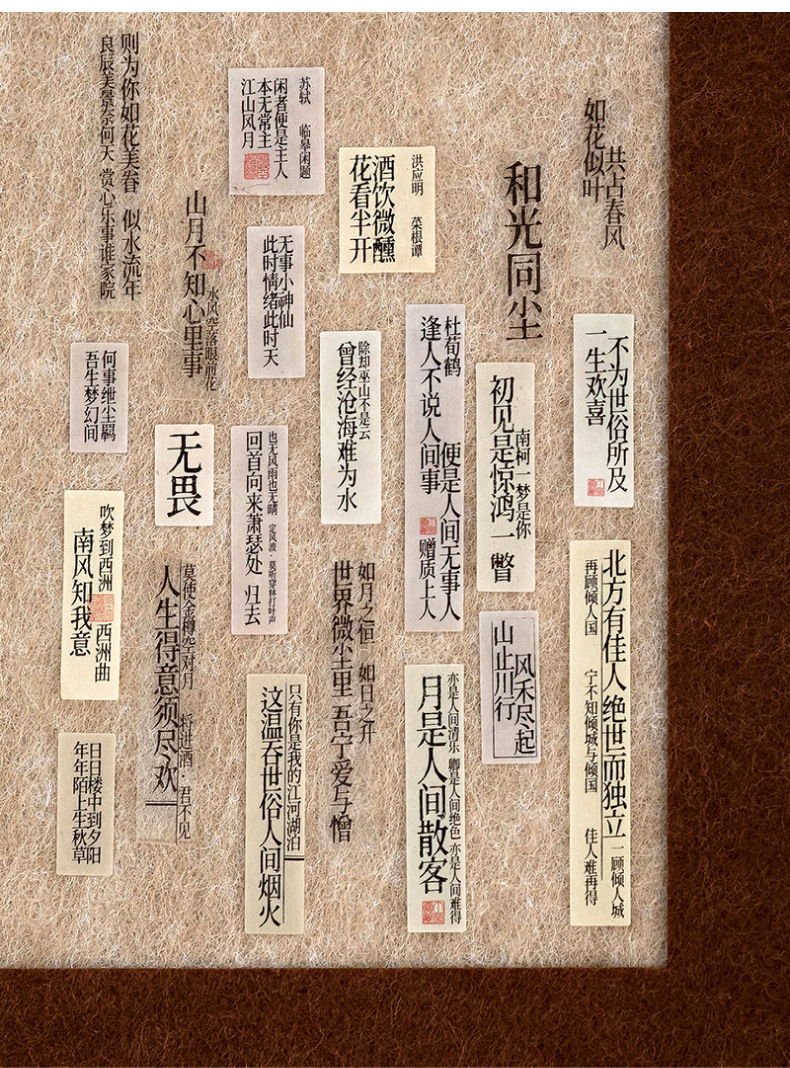 如花似叶
共占春风
和光同尘
不为世俗所及
一生欢喜
北方有佳人 绝世而独立
一顾倾人城
再顾倾人国
宁不知倾城与倾国
佳人难再得
南柯一梦是你
初见是惊鸿一瞥
风禾尽起
山止川行
洪应明 菜根谭
酒饮微醺
花看半开
杜荀鹤
逢人不说人间事
便是人间无事人
赠质上人
亦是人间清乐 卿是人间绝色 亦是人间难得
月是人间散客
苏轼 临皋闲题
闲者便是主人
本无常主
江山风月
无事小神仙
此时情绪此时天
除却巫山不是云
曾经沧海难为水
也无风雨也无晴 定风波·莫听穿林打叶声
回首向来萧瑟处 归去
如月之恒 如日之升
世界微尘里 吾宁爱与憎
只有你是我的江河湖泊
这温吞世俗人间烟火
则为你如花美眷 似水流年
良辰美景奈何天 赏心乐事谁家院
山月不知心里事
水风空落眼前花
何事绁尘羁
吾生梦幻间
无畏
莫使金樽空对月 将进酒·君不见
人生得意须尽欢
吹梦到西洲
南风知我意
西洲曲
日日楼中到夕阳
年年陌上生秋草